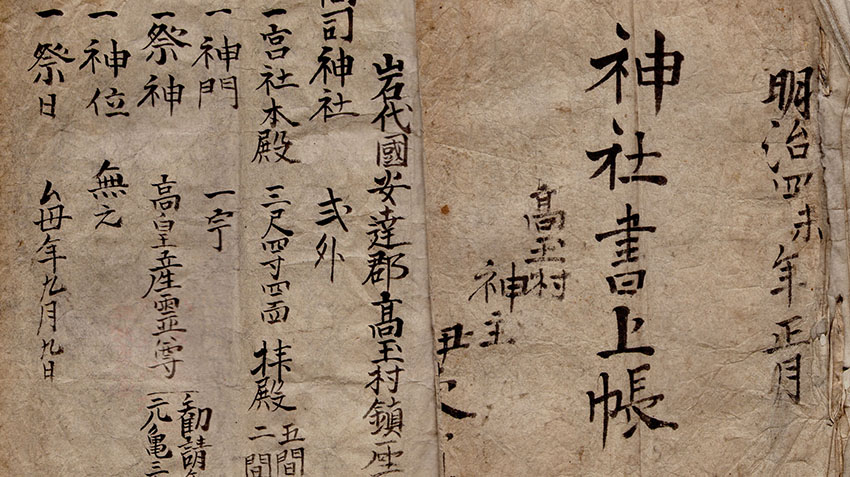 明治四未年正月
神社書上帳
高玉村
神主
岩代國安達郡高玉村鎮座
司神社 式外
一宮社本殿 三尺四寸四面 拝殿 五間
二間
一神門 一宇
一祭神 高皇産霊尊 勧請
元亀三
一神位 無之
一祭日 毎年九月九日